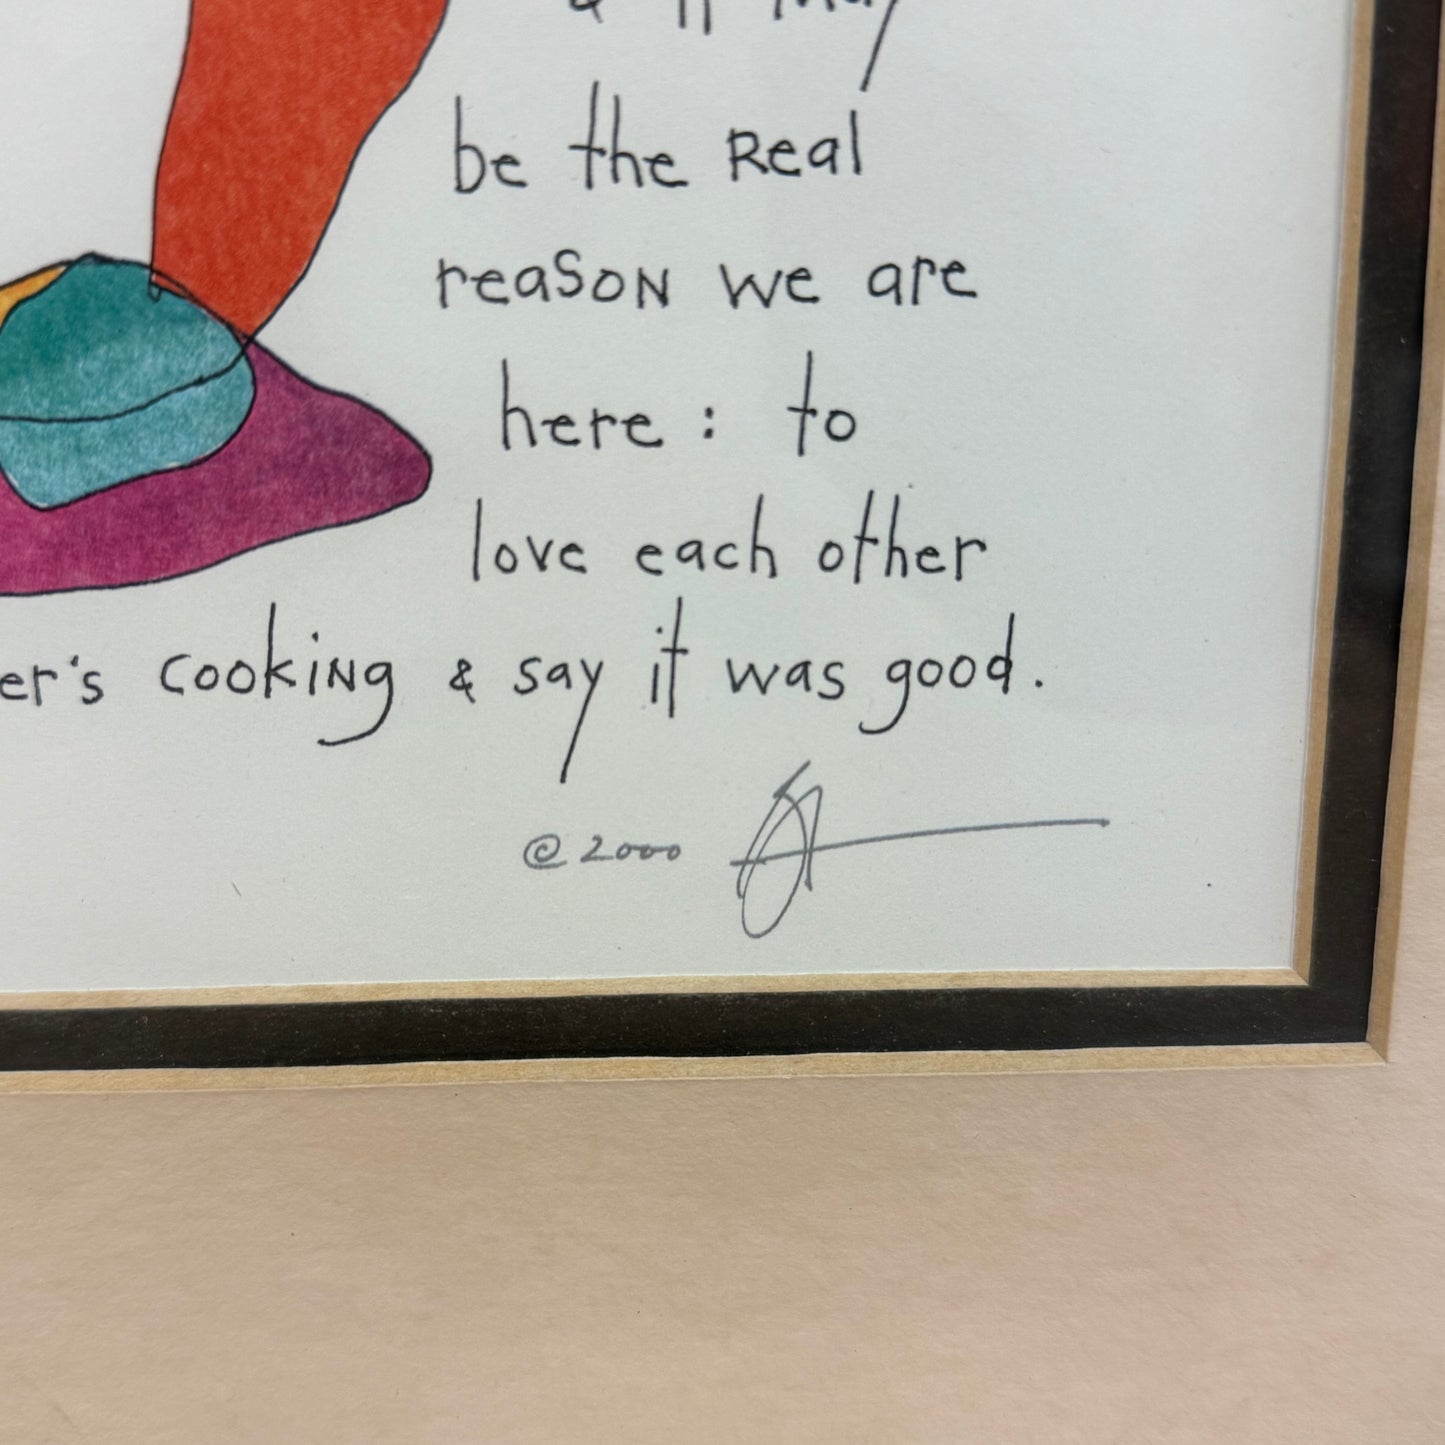 & it may
be the Real
reason we are
here: to
love each other
er's cooking & say it was good.
© 2000